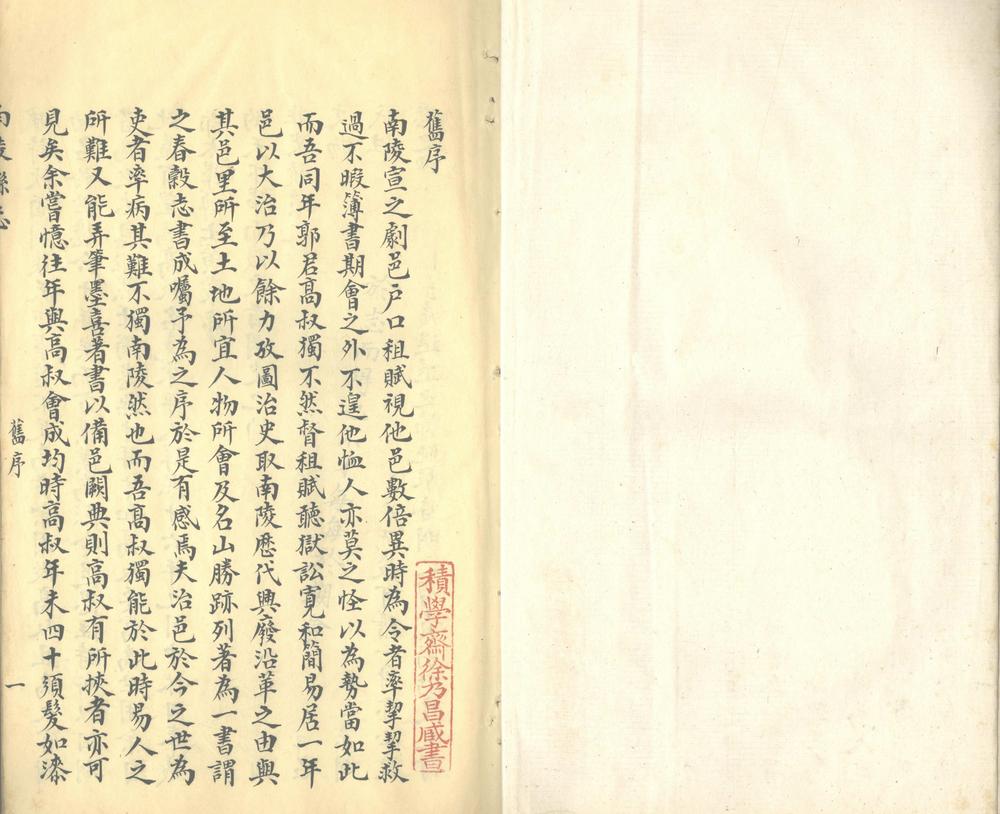 舊序
南陵宣之劇邑戶口租賦視他邑數倍異時為令者率挈挈救
過不暇簿書期會之外不遑他恤人亦莫之怪以為勢當如此
而吾同年郭君高叔獨不然督租賦聽獄訟寬和簡易居一年
邑以大治乃以餘力攷圖治史取南陵歷代興廢沿革之由與
其邑里所至土地所宜人物所會及名山勝跡列著為一書謂
之春穀志書成囑予為之序於是有感焉夫治邑於今之世為
吏者率病其難不獨南陵然也而吾高叔獨能於此時易人之
所難又能弄筆墨喜著書以備邑闕典則高叔有所挾者亦可
見矣余嘗憶往年與高叔會成均時高叔年未四十須髮如漆
南陵縣志
舊序
一
積學齋徐乃昌藏書